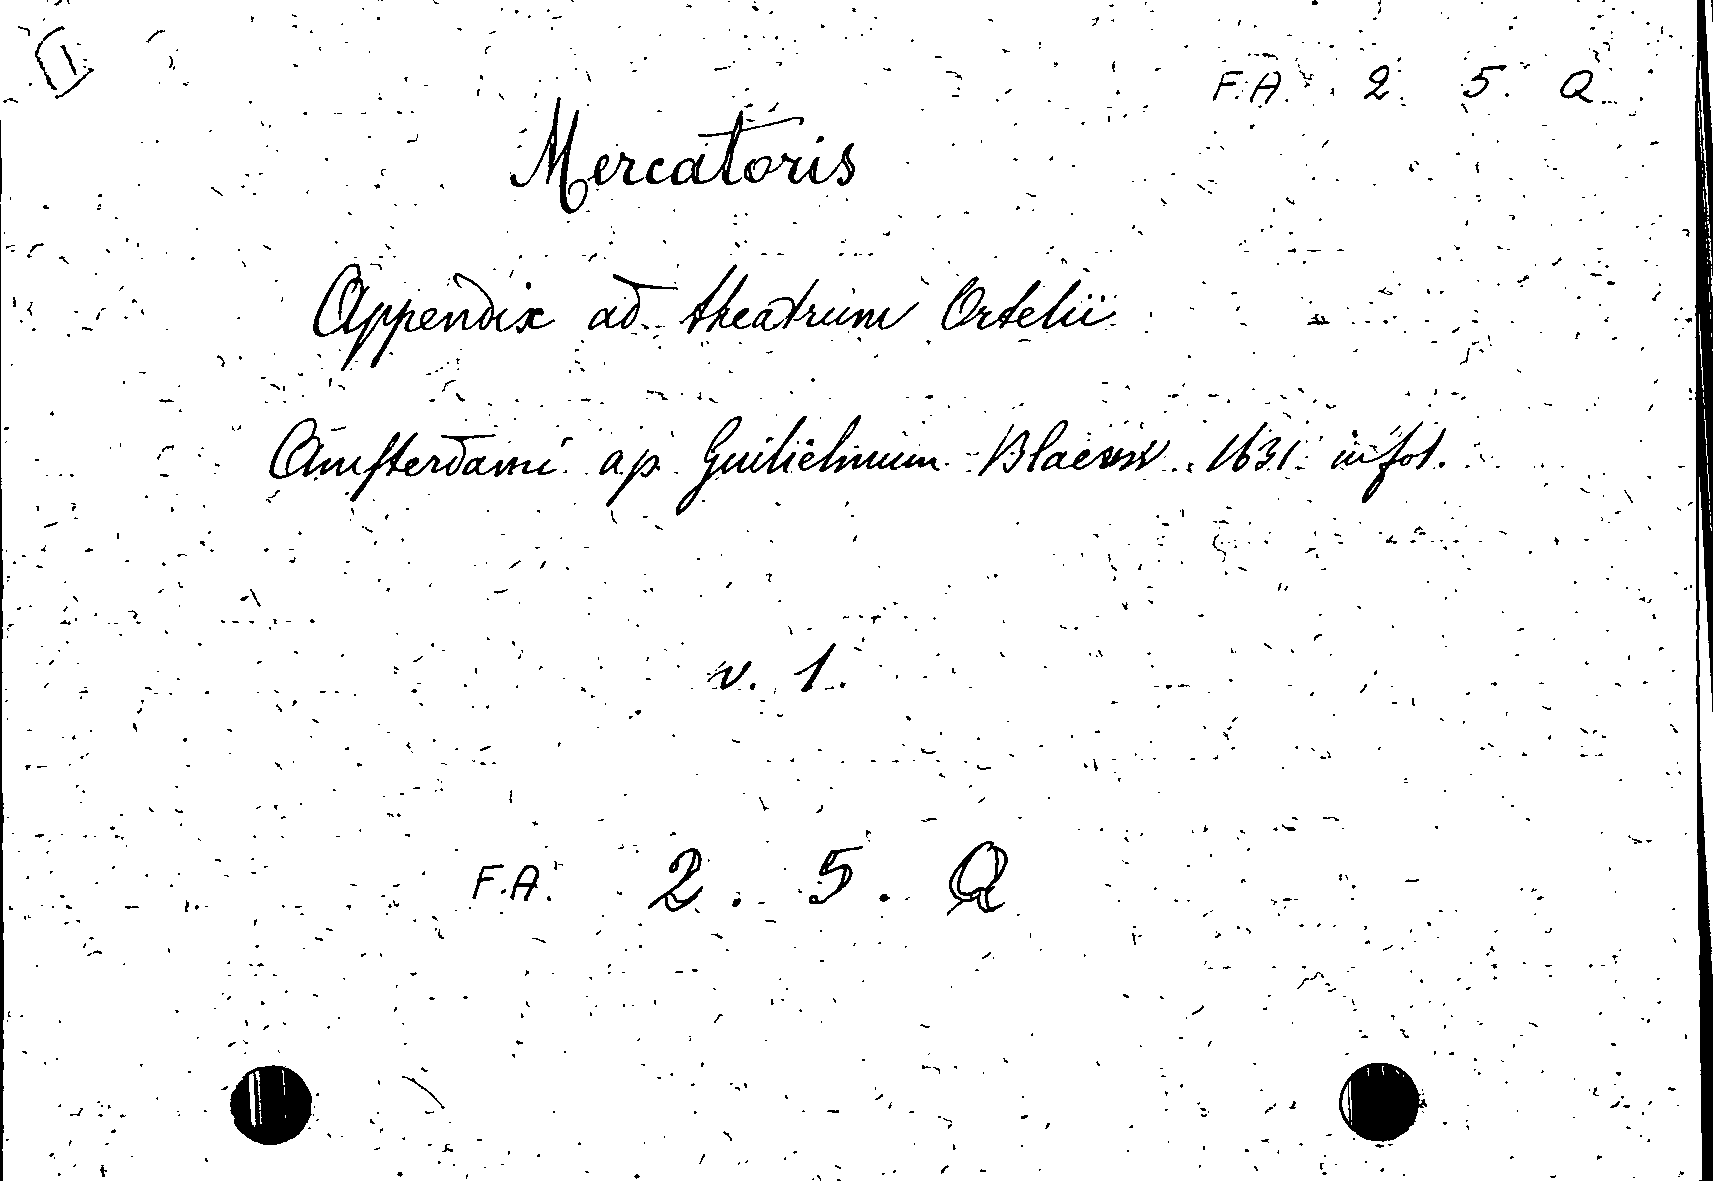 1
F.A. 2. 5. Q
Mercatoris
Appendix ad theatrum Ortelii
Amsterdami ap Guilielmum Blaeuw 1631 in fol.
v. 1.
F.A. 2. 5. Q